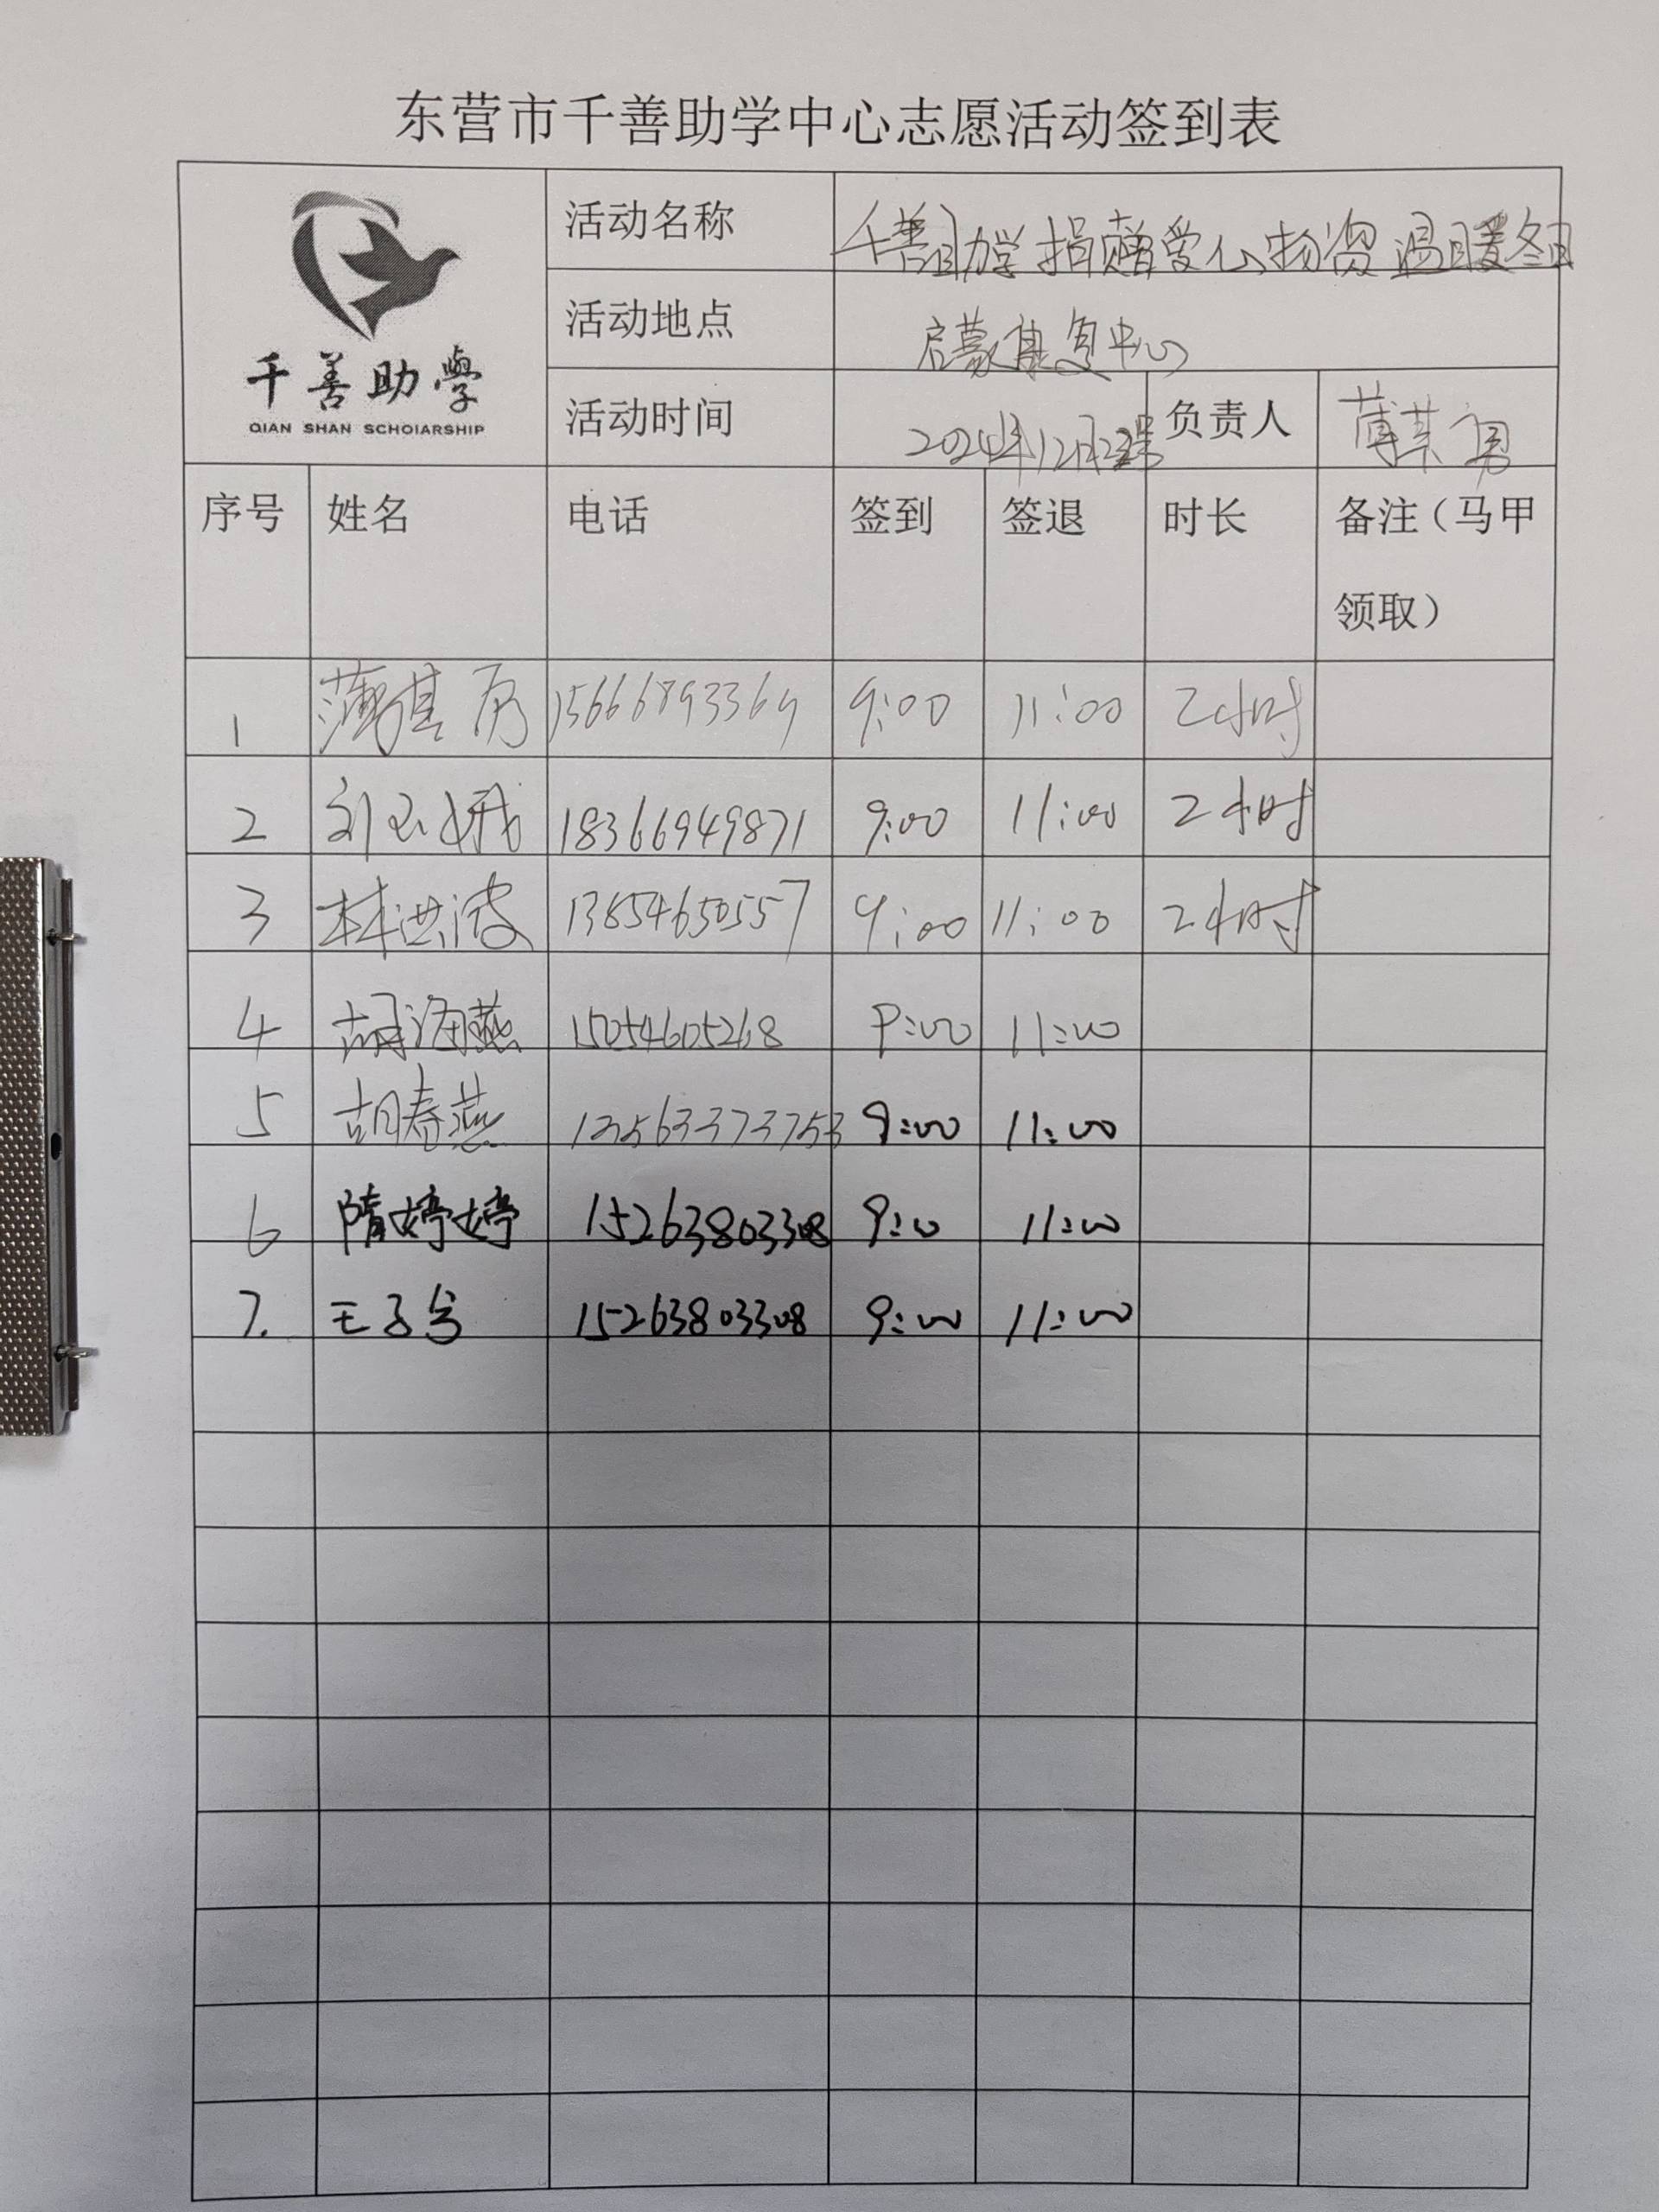 东营市千善助学中心志愿活动签到表
千善助學
QIAN SHAN SCHOIARSHIP
活动名称 千善助学捐赠爱心物资温暖冬日
活动地点 启蒙康复中心
活动时间 2024年12月 负责人 薄其
序号 姓名 电话 签到 签退 时长 备注（马甲
领取）
1 薄其 15666893369 9:00 11:00 2小时
2 刘玉娥 18366949871 9:00 11:00 2小时
3 林洪波 13854650557 9:00 11:00 2小时
4 胡海燕 15054605268 9:00 11:00
5 胡春燕 9:00 11:00
6 隋婷婷 15263803308 9:00 11:00
7. 王子 15263803308 9:00 11:00